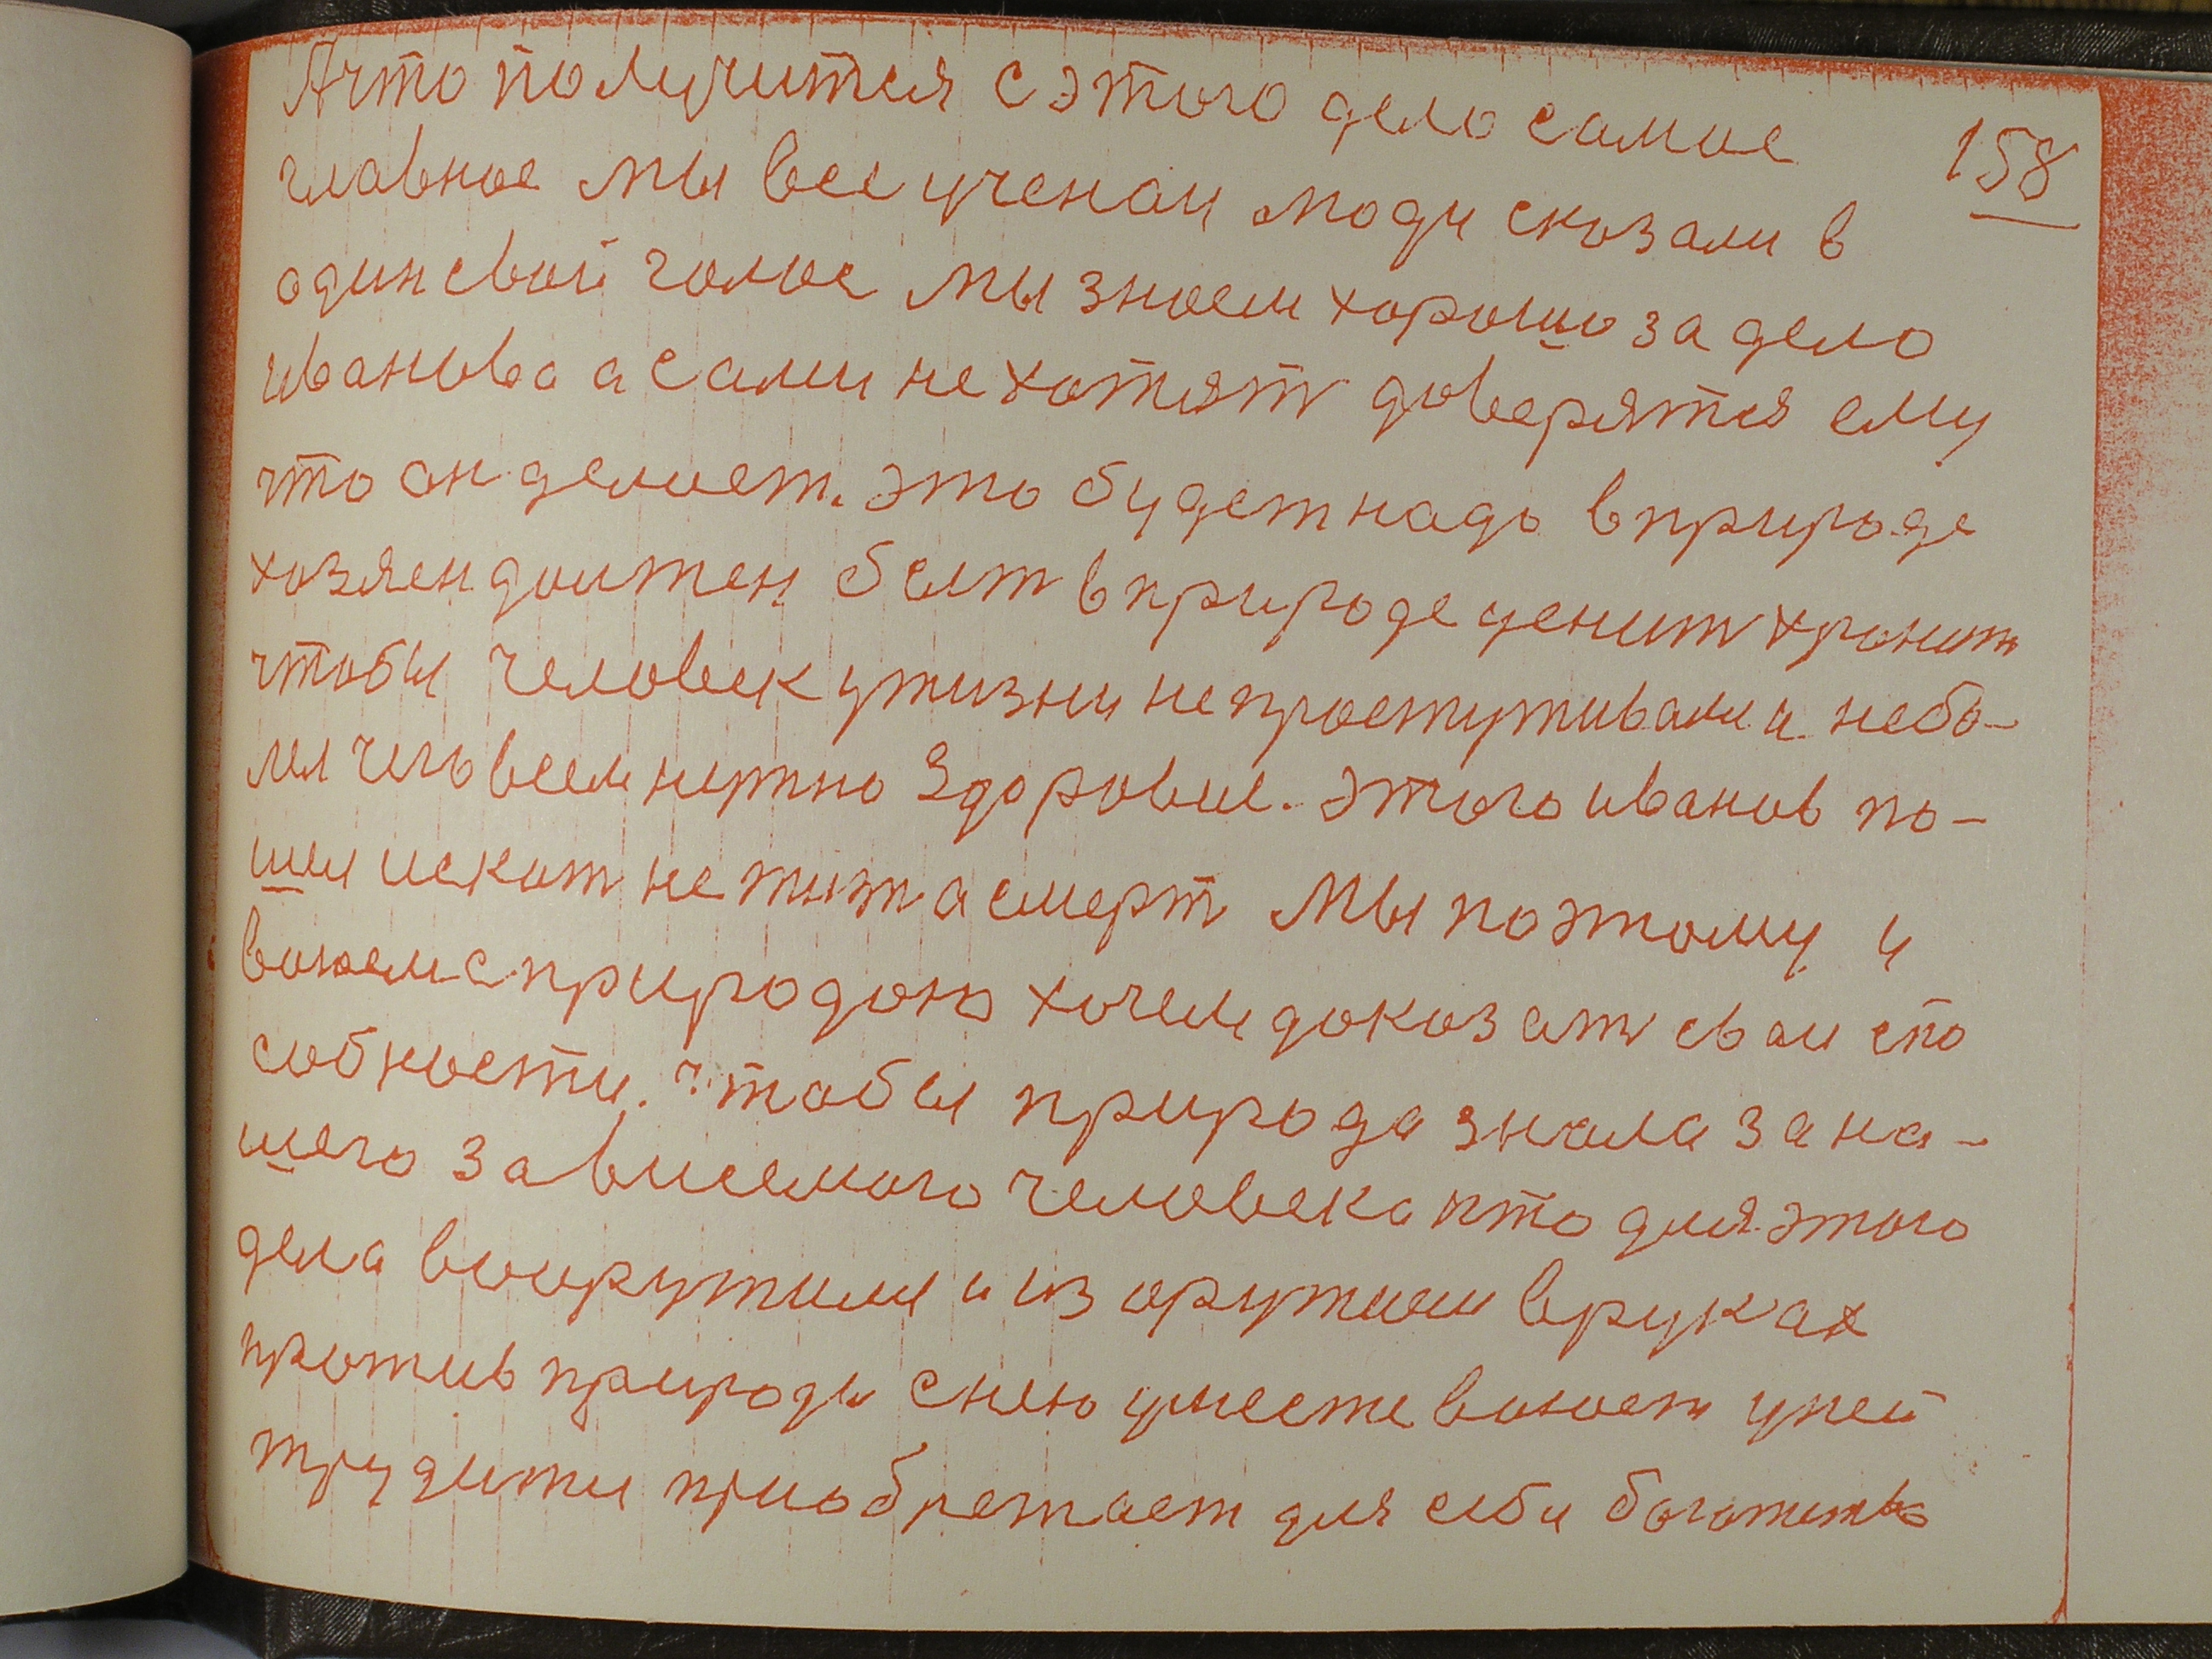 Ачто получится с этого дело самое
158
главное мы все ученаи люди сказали в
один свой голос мы знаем хорошо за дело
иванова а сами не хотят доверятся ему
что он делает. это будет надо в природе
хозяен должен быт в природе ценит хронит
чтобы человек у жизни не простуживали и небо-
лел чево всем нужно Здоровие. этого иванов по-
шел искат не жизт а смерт Мы поэтому и
воюем с природою хочем доказат сваи спо
собности. чтобы природа знала за на-
шего зависемого человека кто для этого
дела вооружили и из оружием в руках
против природы снею умести воюет уней
трудити приобретает для себи богатство